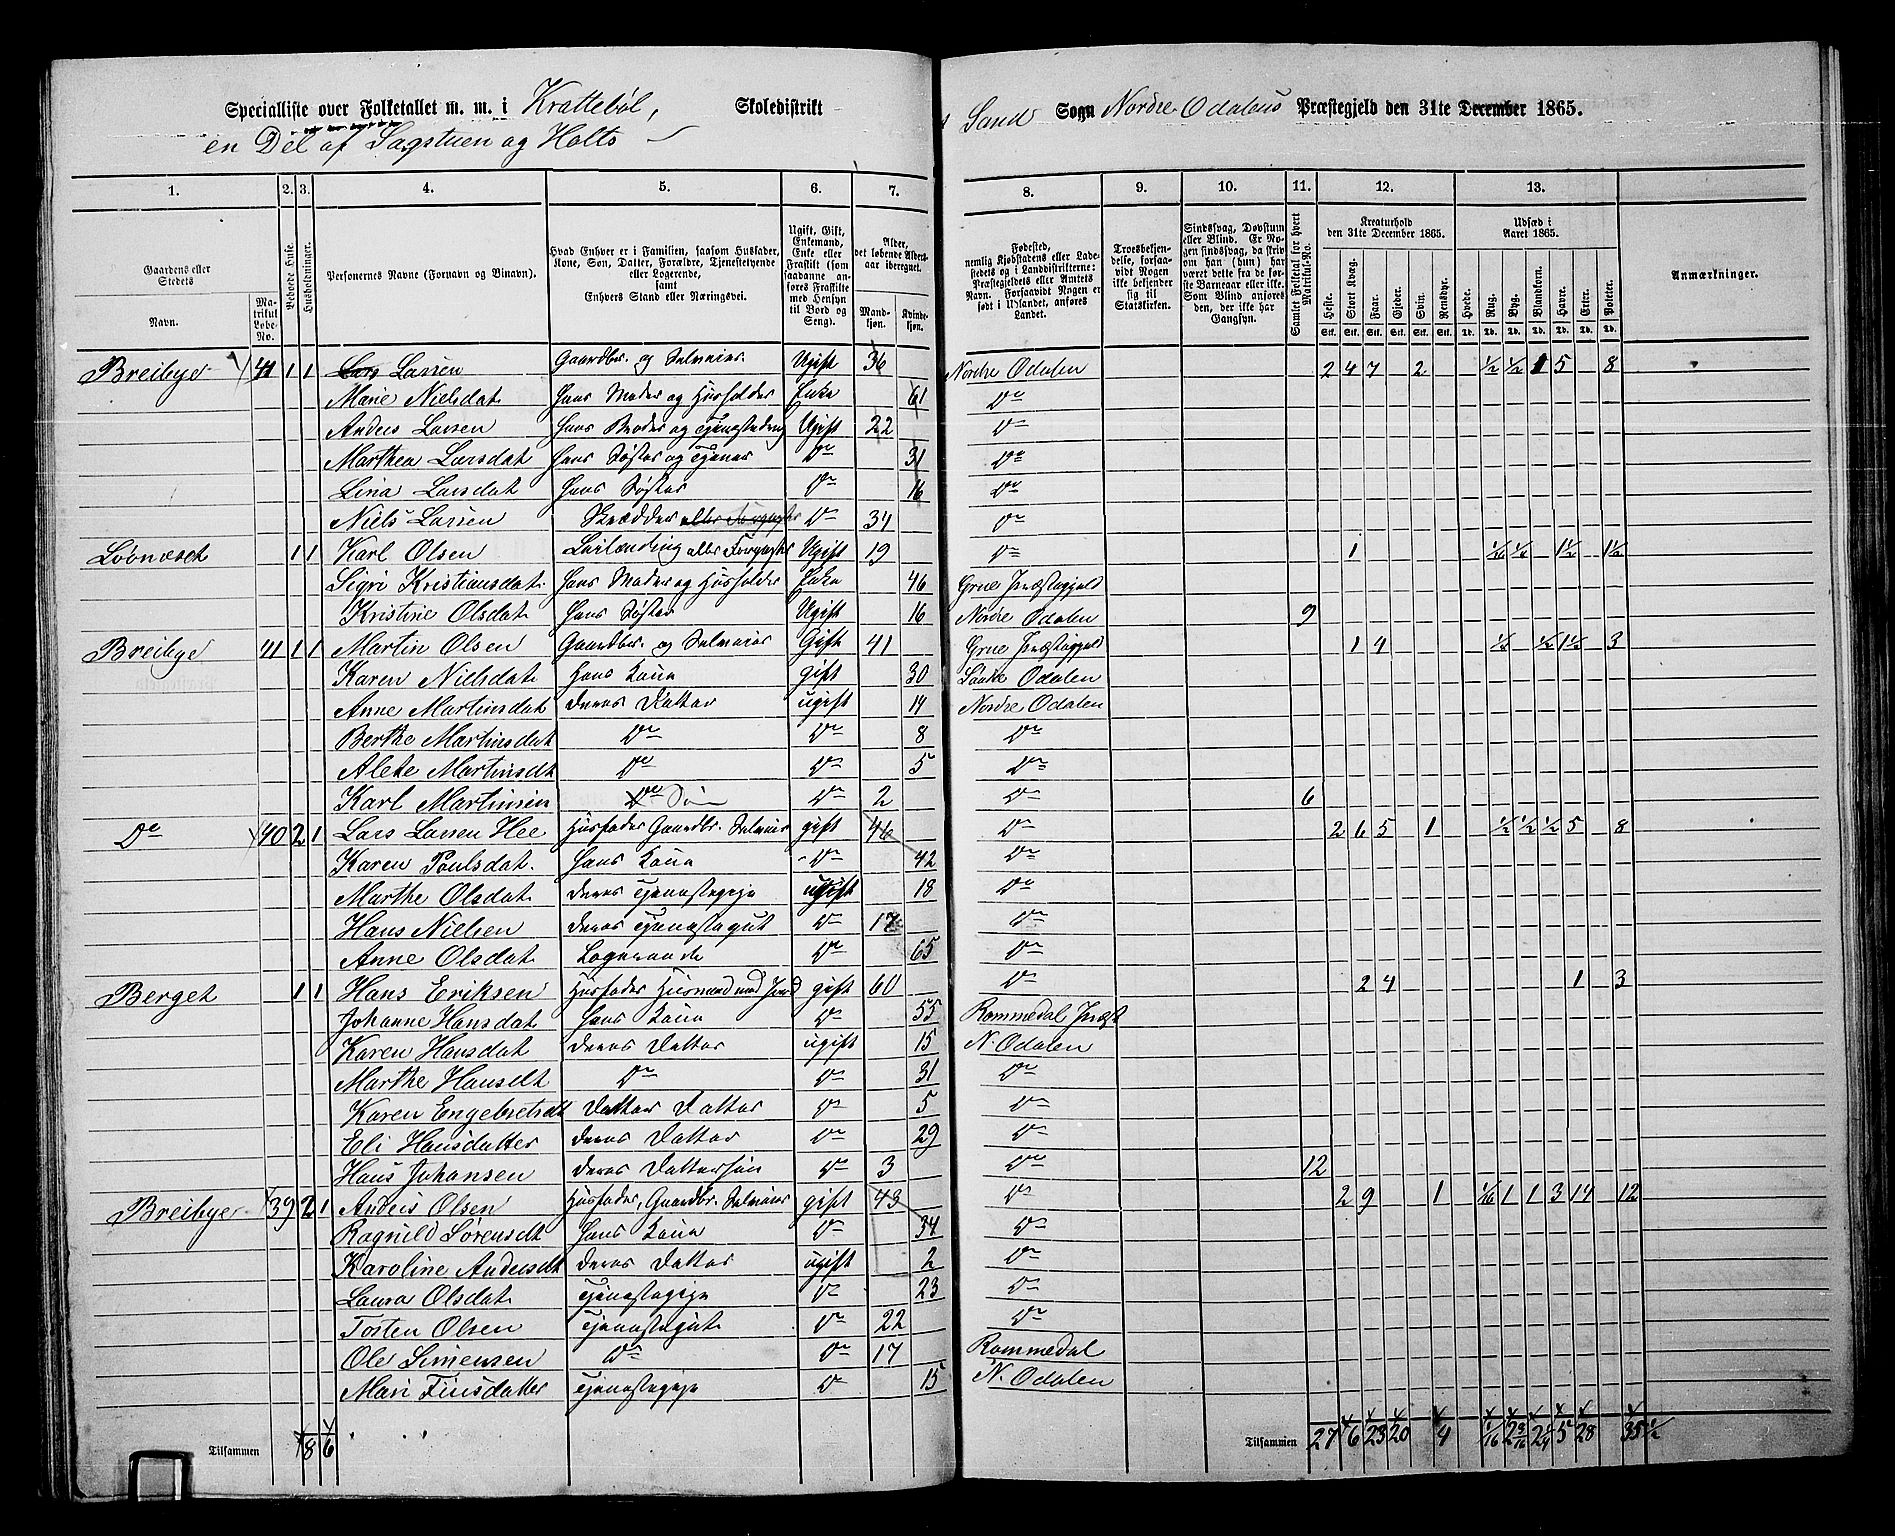 Specialliste over Folketallet m. m. i Krattebøl, Skoledistrikt
en Del af Sagstuen og Holts
Sand Sogn Nordre Odalens Præstegjeld den 31te December 1865.
1. 2. 3. 4. 5. 6. 7. 8. 9. 10. 11. 12. 13.
Gaardens eller Stedets Navn.
Matrikul Løbe-No.
Beboede Huse.
Husholdninger.
Personernes Navne (Fornavn og Binavn).
Hvad Enhver er i Familien, saasom Husfader, Kone, Søn, Datter, Forældre, Tjenestetyende eller Logerende, samt Enhvers Stand eller Næringsvei.
Ugift, Gift, Enkemand, Enke eller Fraskilt (som saadanne anføres Fraskilte med Hensyn til Bord og Seng).
Alder, det løbende Alders-aar iberegnet.
Mandkjøn. Kvindekjøn.
Fødested, nemlig Kjøbstadens eller Ladestedets og i Landdistrikterne: Præstegjeldets eller Amtets Navn. Forsaavidt Nogen er født i Udlandet, anføres Landet.
Troesbekjendelse, forsaavidt Nogen ikke bekjender sig til Statskirken.
Sindssvag, Døvstum eller Blind. Er Nogen sindssvag, da skriv om han (hun) har været dette fra de første Barneaar eller ikke. Som Blind anføres den, der ikke har Gangsyn.
Samlet Folketal for hvert Matrikul-No.
Kreaturhold den 31te December 1865.
Heste. Stort Kvæg. Faar. Gjeder. Svin. Rensdyr.
Udsæd i Aaret 1865.
Hvede. Rug. Byg. Blandkorn. Havre. Erter. Poteter.
Anmærkninger.
Breibye 41 1 1 Lars Larsen Gaardbr. og Selveier Ugift 36 Nordre Odalen 2 4 7 2 ½ ½ 1 5 8
Marie Nielsdat hans Moder og Husholder Enke 61 Do
Anders Larsen hans Broder og Tjenestedreng Ugift 22 Do
Marthea Larsdat hans Søster og Tjener Do 31 Do
Lina Larsdat hans Søster Do 16 Do
Niels Larsen Skrædder Do 34 Do
Løvnæset 1 1 Karl Olsen Leilænding Ugift 19 Do 1 1½ 1½
Sigri Kristiansdat hans Moder og Husholder Enke 46 Grue Præstegjeld
Kristine Olsdat hans Søster Ugift 16 Nordre Odalen 9
Breibye 41 1 1 Martin Olsen Gaardbr. og Selveier Gift 41 Grue Præstegjeld 1 4 ½ 1½ 3
Karen Nielsdat hans Kone gift 30 Søndre Odalen
Anne Martinsdat deres Datter ugift 14 Nordre Odalen
Berthe Martinsdat Do Do 8 Do
Alete Martinsdt Do Do 5 Do
Karl Martinsen Søn Do 2 Do 6
Do 40 2 1 Lars Larsen Hee Husfader Gaardbr. Selveier gift 46 Do 2 6 5 1 ½ ½ ½ 5 8
Karen Poulsdat hans Kone Do 42 Do
Marthe Olsdat deres Tjenestepige ugift 18 Do
Hans Nielsen deres Tjenestegut Do 17 Do
Anne Olsdat Logerende Do 65 Do
Berget 1 1 Hans Eriksen Husfader Husmand med Jord gift 60 Do 2 4 1 3
Johanne Hansdat hans Kone Do 55 Rommedal Præst
Karen Hansdat deres Datter ugift 15 N. Odalen
Marthe Hansdt Do Do 31 Do
Karen Engebretsdt Datters Datter Do 5 Do
Eli Hansdatter deres Datter Do 29 Do
Hans Johansen deres Dattersøn Do 3 Do 12
Breibye 39 2 1 Anders Olsen Husfader, Gaardbr. Selveier gift 43 Do 2 9 1 1/16 1 1 3 14 12
Ragnild Sørensdt hans Kone Do 34 Do
Karoline Andersdt deres Datter ugift 2 Do
Laura Olsdat Tjenestepige Do 23 Do
Tosten Olsen Tjenestegut Do 22 Do
Ole Simensen Do Do 17 Rommedal
Mari Finsdatter Tjenestepige Do 15 N. Odalen
Tilsammen 8 6
Tilsammen 27 6 23 20 4 1/16 5 28 35½